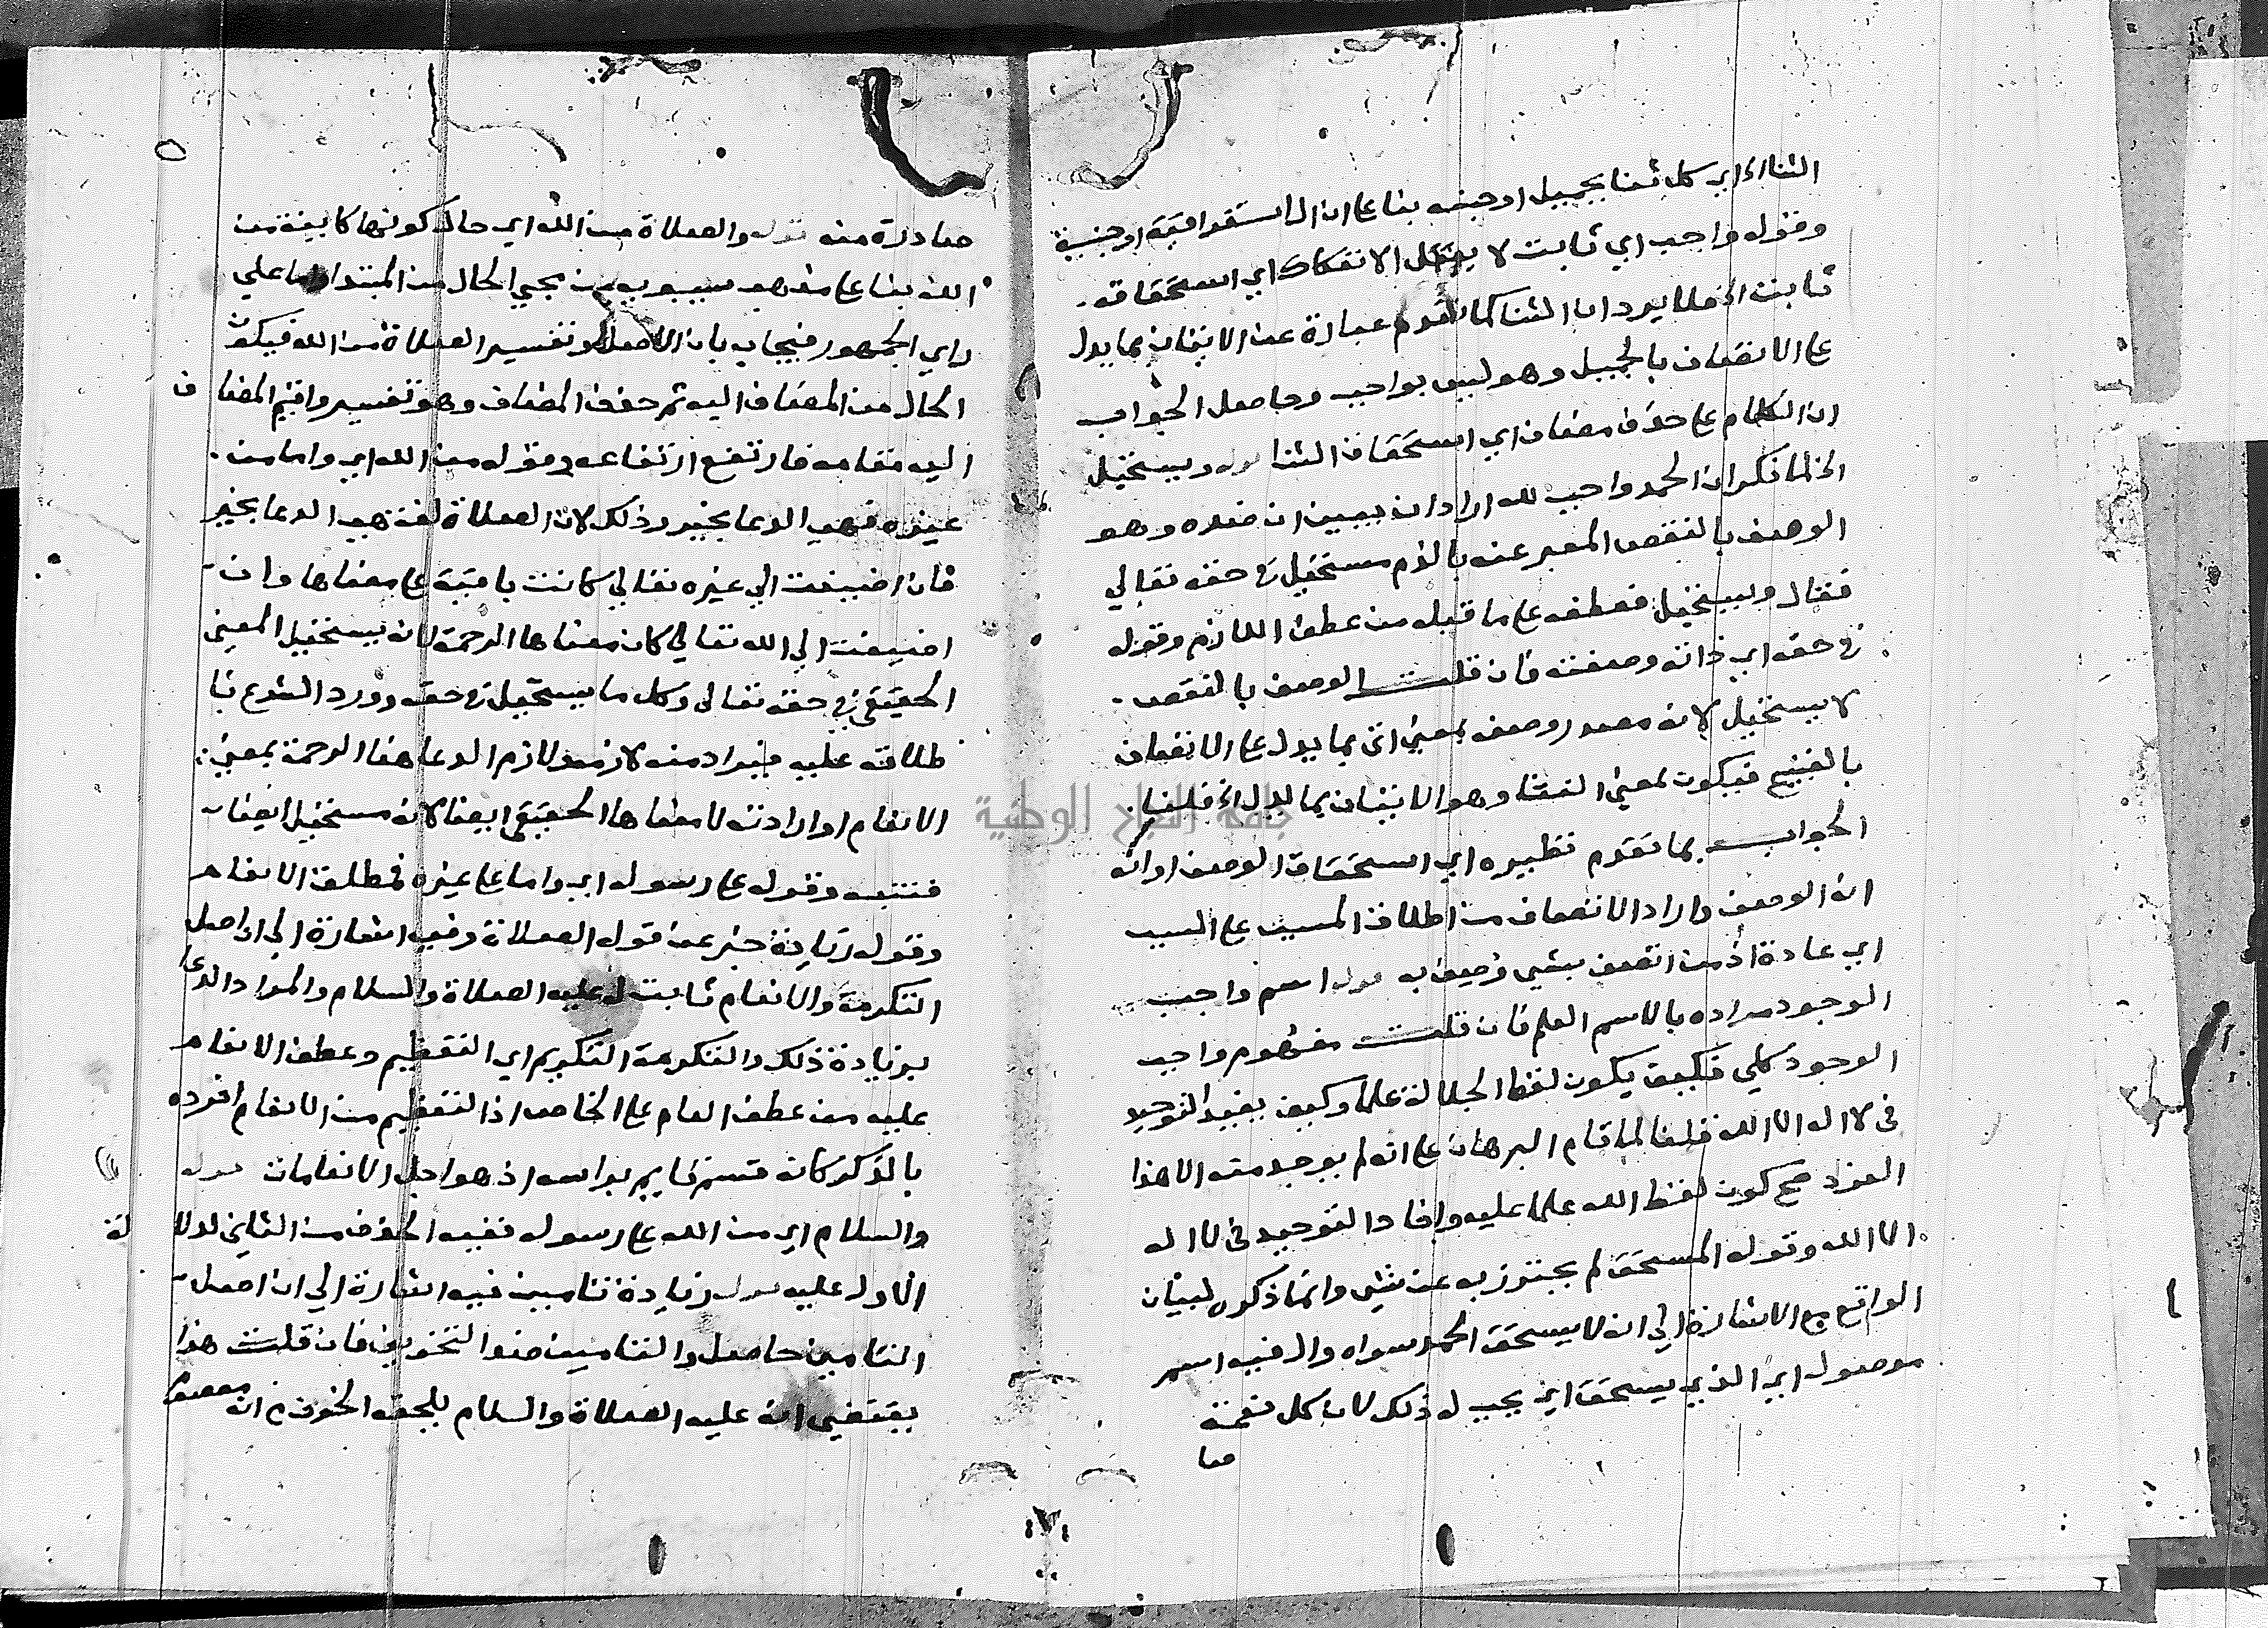 الثنااذ اي كل ثنا بجميل او جنسه بنا ع ان ال استغراقية او جنسية
وقوله واجب اي ثابت لا يقبل الانفكاك اي استحقاقه
ثابت الخ فلا يرد ان الثنا كما تقدم عبارة عن الاتيان بما يدل
ع الاتصاف بالجميل وهو ليس بواجب وحاصل الجواب
ان الكلام ع حذف مضاف اي استحقاق الثنا قوله ويستحيل
الخ لما ذكر ان الحمد واجب لله اراد ان يبين ان ضده وهو
الوصف بالنقص المعبر عنه بالذم مستحيل في حقه تعالي
فقال ويستحيل فعطفه ع ما قبله من عطف اللازم وقوله
في حقه اي ذاته وصفته فان قلت الوصف بالنقص
لا يستحيل لانه مصدر وصف بمعني اتي بما يدل ع الاتصاف
بالقبيح فيكون بمعني الثنا وهو الاتيان بما يدل الخ قلنا
الجواب بما تقدم نظيره اي استحقاق الوصف او انه
ان الوصف واراد الاتصاف من اطلاق المسبب ع السبب
اي عادة اذ من اتصف بشي وصف به قوله اسم واجب
الوجود مراده بالاسم العلم فان قلت مفهوم واجب
الوجود كلي فكيف يكون لفظ الجلالة علما وكيف يفيد التوحيد
في لا اله الا الله قلنا لما قام البرهان ع انه لم يوجد منه الا هذا
الفرد صح كون لفظ الله علما عليه وافاد التوحيد في لا اله
الا الله وقوله المستحق لم يحترز به عن شي وانما ذكره لبيان
الواقع مع الاشارة الي انه لا يستحق الحمد سواه وال فيه اسم
موصول اي الذي يستحق اي يجب له ذلك لان كل نعمة
صا
صادرة منه قوله والصلاة من الله اي حال كونها كاينة من
الله بنا ع مذهب سيبويه من مجي الحال من المبتدا واما علي
راي الجمهور فيجاب بان الاصل وتفسير الصلاة من الله فيكون
الحال من المضاف اليه ثم حذف المضاف وهو تفسير واقيم المضاف
اليه مقامه فارتفع ارتفاعه وقوله من الله اي واما من
غيره فهي الدعا بخير وذلك لان الصلاة لغة هي الدعا بخير
فان اضيفت الي غيره تعالي كانت باقية ع معناها وان
اضيفت الي الله تعالي كان معناها الرحمة لانه يستحيل المعني
الحقيقي في حقه تعالي وكل ما يستحيل في حقه وورد الشرع با
طلاقه عليه فيراد منه لازمه ولازم الدعا هنا الرحمة بمعني
الانعام او ارادته لا معناها الحقيقي ايضا لانه مستحيل ايضا
فتنبه وقوله ع رسوله اي واما ع غيره فمطلق الانعام
وقوله زيادة خبر عن قوله الصلاة وفيه اشارة الي ان اصل
التكرمة والانعام ثابت له عليه الصلاة والسلام والمراد الدعا
بزيادة ذلك والتكرمة التكريم اي التعظيم وعطف الانعام
عليه من عطف العام ع الخاص اذ التعظيم من الانعام افرده
بالذكر كانه قسم قايم براسه اذ هو اجل الانعامات قوله
والسلام اي من الله ع رسوله ففيه الحذف من الثاني لدلالة
الاول عليه قوله زيادة تامين فيه اشارة الي ان اصل
التامين حاصل والتامين ضد التخويف فان قلت هذا
يقتضي انه عليه الصلاة والسلام يلحقه الخوف مع انه معصوم
جامعة النجاح الوطنية